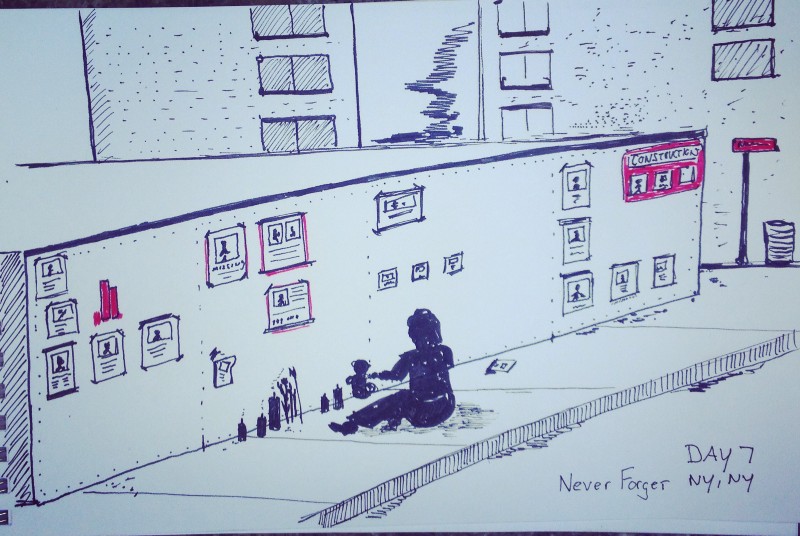 CONSTRUCTION
MISSING
DAY 7
Never Forget NY, NY